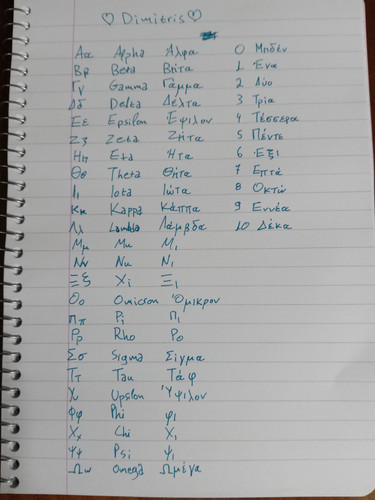 ♡ Dimitris ♡
Αα Alpha Αλφα 0 Μηδέν
Ββ Beta Βήτα 1 Ένα
Γγ Gamma Γάμμα 2 Δύο
Δδ Delta Δέλτα 3 Τρία
Εε Epsilon Έψιλον 4 Τέσσερα
Ζζ Zeta Ζήτα 5 Πέντε
Ηη Eta Ητα 6 Έξι
Θθ Theta Θήτα 7 Επτά
Ιι Iota Ιώτα 8 Οκτώ
Κκ Kappa Κάππα 9 Εννέα
Λλ Λάμβδα 10 Δέκα
Μμ Mu Μι
Νν Nu Νι
Ξξ Xi Ξι
Οο Omicron Όμικρον
Ππ Pi Πι
Ρρ Rho Ρο
Σσ Sigma Σίγμα
Ττ Tau Τάφ
Upsilon Ύψιλον
Φφ Phi φι
Χχ Chi Χι
Ψψ Psi ψι
Ωω Omega Ωμέγα